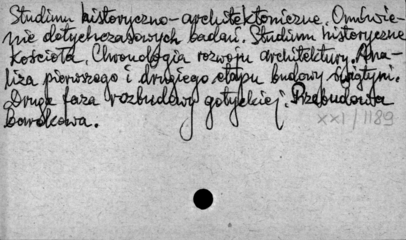 Studium historyczno-architektoniczne. Omówie-
nie dotychczasowych badań. Studium historyczne
Kościoła. Chronologia rozwoju architektury. Ana-
liza pierwszego i drugiego etapu budowy świątyni.
Druga faza rozbudowy gotyckiej. Przebudowa
barokowa.
XXI/1189